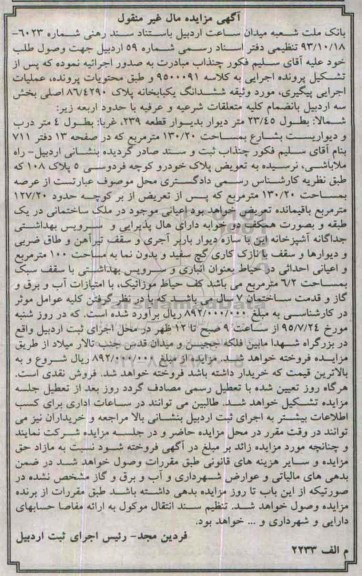 آگهی مزایده مال غیر منقول
بانک ملت شعبه میدان ساعت اردبیل باستناد سند رهنی شماره ۶۰۲۳-
۹۳/۱۰/۱۸ تنظیمی دفتر اسناد رسمی شماره ۵۹ اردبیل جهت وصول طلب
خود علیه آقای سلیم فکور چنذاب مبادرت به صدور اجرائیه نموده که پس از
تشکیل پرونده اجرایی به کلاسه ۹۵۰۰۰۹۱ و طبق محتویات پرونده، عملیات
اجرایی پیگیری، مورد وثیقه ششدانگ یکبابخانه پلاک ۸۶/۴۲۹۰ اصلی بخش
سه اردبیل بانضمام کلیه متعلقات شرعیه و عرفیه با حدود اربعه زیر:
شمالا: بطول ۲۳/۴۵ متر دیوار بدیوار قطعه ۲۳۹، غربا: بطول ۴ متر درب
و دیواریست بشارع بمساحت ۱۳۰/۲۰ مترمربع که در صفحه ۱۳ دفتر ۷۱۱
بنام آقای سلیم فکور چنذاب ثبت و سند صادر گردیده بنشانی اردبیل- راه
ملاباشی، نرسیده به تعویض پلاک خودرو کوچه فردوسی ۵ پلاک ۱۰۸ که
طبق نظریه کارشناس رسمی دادگستری محل موصوف عبارتست از عرصه
بمساحت ۱۳۰/۲۰ مترمربع که پس از تعریض از بر کوچه حدود ۱۲۷/۲۰
مترمربع باقیمانده تعریض خواهد بود اعیانی موجود در ملک ساختمانی در یک
طبقه و بصورت همکف دو خوابه دارای هال پذیرایی و سرویس بهداشتی
جداگانه آشپزخانه اپن با سازه دیوار باربر آجری و سقف تیرآهن و طاق ضربی
و دیوارها و سقف با نازک کاری گچ سفید و بدون نما به مساحت ۱۰۰ مترمربع
و اعیانی احداثی در حیاط بعنوان انباری و سرویس بهداشتی با سقف سبک
بمساحت ۶/۲ مترمربع می باشد کف حیاط موزائیک، با امتیازات آب و برق و
گاز و قدمت ساختمان ۷ سال می باشد که با در نظر گرفتن کلیه عوامل موثر
در کارشناسی به مبلغ ۸۹۲/۰۰۰/۰۰۰ ریال برآورد شده است. که در روز شنبه
مورخ ۹۵/۷/۲۴ از ساعت ۹ صبح تا ۱۲ ظهر در محل اجرای ثبت اردبیل واقع
در بزرگراه شهدا مابین فلکه ججین و میدان قدس جنب تالار میلاد از طریق
مزایده فروخته خواهد شد. مزایده از مبلغ ۸۹۲/۰۰۰/۰۰۰ ریال شروع و به
بالاترین قیمت که خریدار داشته باشد فروخته خواهد شد. فروش نقدی است.
هرگاه روز تعیین شده با تعطیل رسمی مصادف گردد روز بعد از تعطیل جلسه
مزایده تشکیل خواهد شد. طالبین می توانند در ساعات اداری برای کسب
اطلاعات بیشتر به اجرای ثبت اردبیل بنشانی بالا مراجعه و خریداران نیز می
توانند در وقت مقرر در محل مزایده حاضر و در جلسه مزایده شرکت نمایند
و چنانچه مورد مزایده زائد بر مبلغ در آگهی فروخته شود نسبت به مازاد حق
مزایده و سایر هزینه های قانونی طبق مقررات وصول خواهد شد در ضمن
بدهی های مالیاتی و عوارض شهرداری و آب و برق و گاز مشخص نشده در
صورتیکه از این بابت تا روز مزایده بدهی داشته باشد طبق مقررات از برنده
مزایده وصول خواهد شد. تنظیم سند انتقال موکول به ارائه مفاصا حسابهای
دارایی و شهرداری و ... خواهد بود.
فردین مجد- رئیس اجرای ثبت اردبیل
م الف ۲۲۳۳